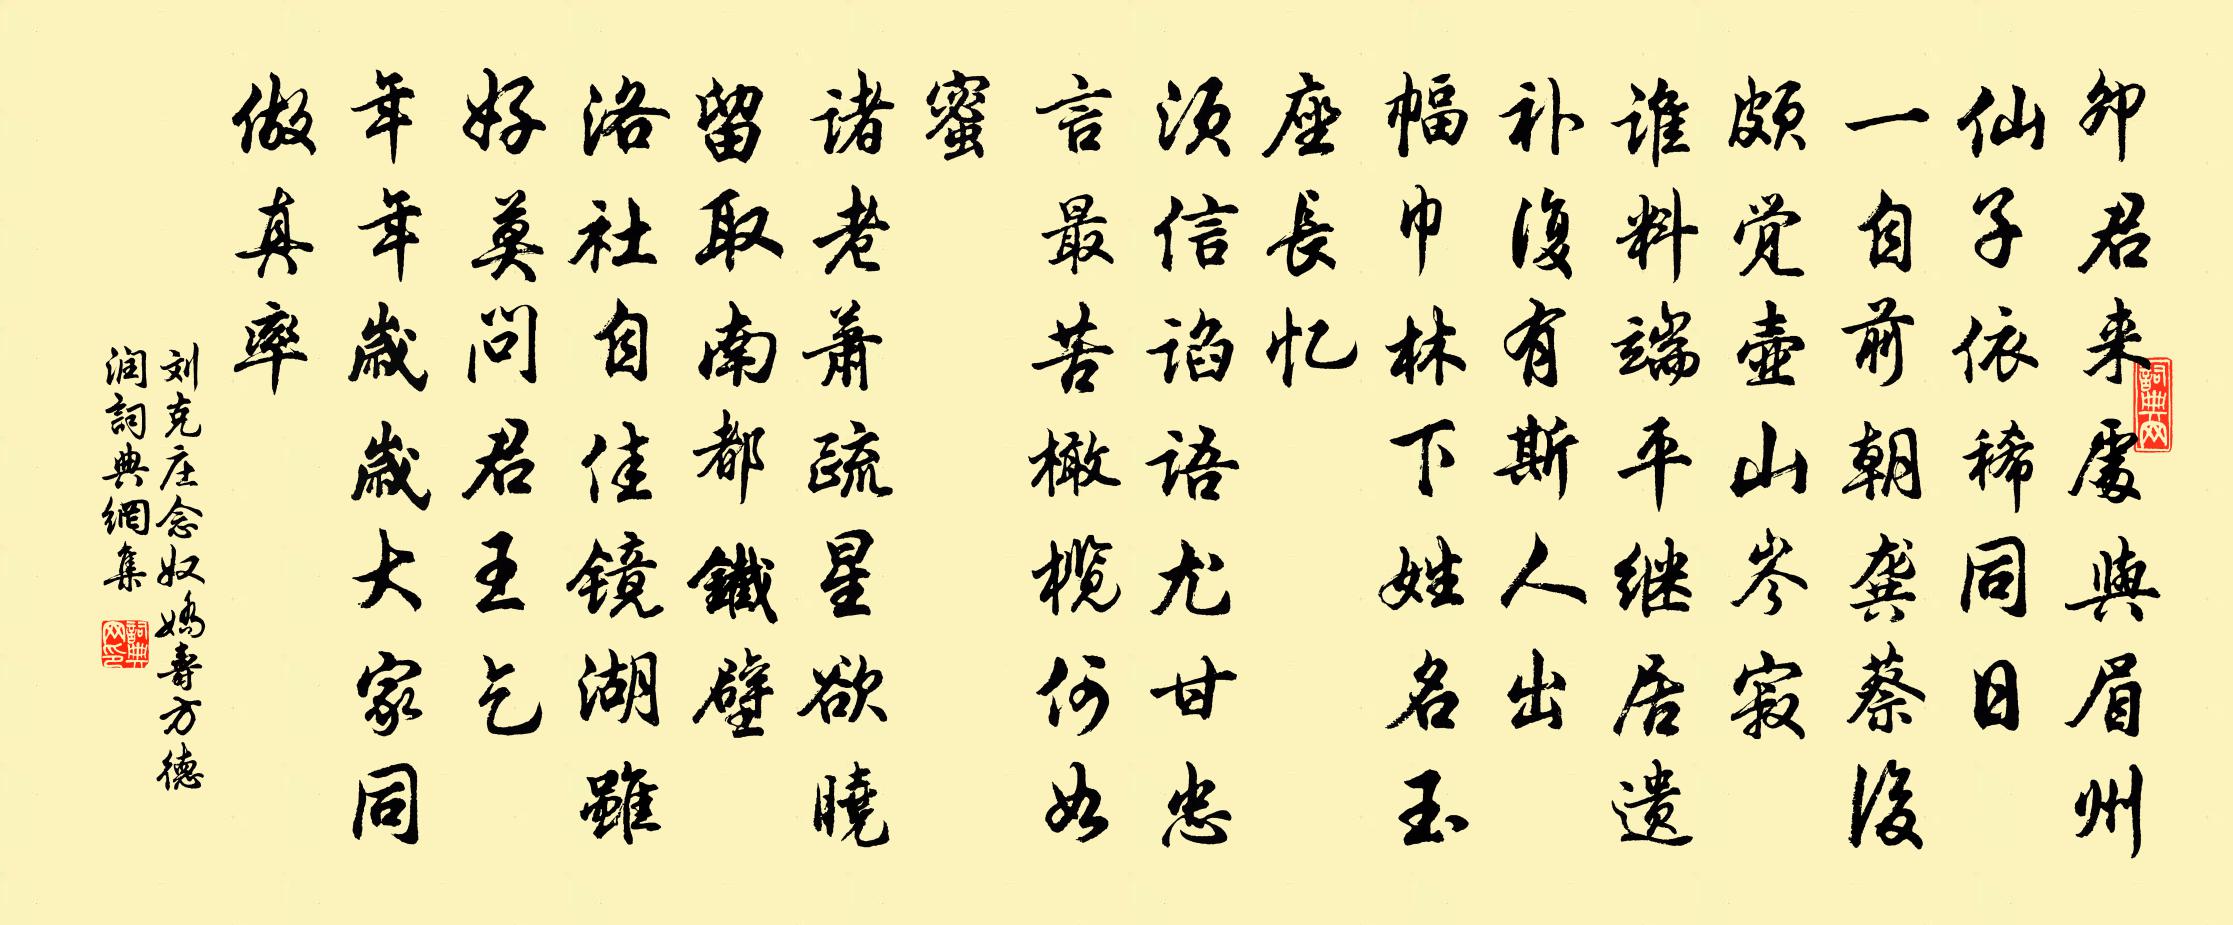 卯君来處與眉州
仙子依稀同日
一自前朝龚蔡後
颇觉壶山岑寂
谁料端平继居遗
补復有斯人出
幅巾林下姓名玉
座長忆
须信谄语尤甘忠
言最苦橄榄何如
蜜
诸老萧疏星欲曉
留取南都鐵壁
洛社自佳镜湖雖
好莫問君王乞
年年歲歲大家同
做真率
刘克庄念奴嬌壽方德
润詞典網集
詞典网
詞典网印